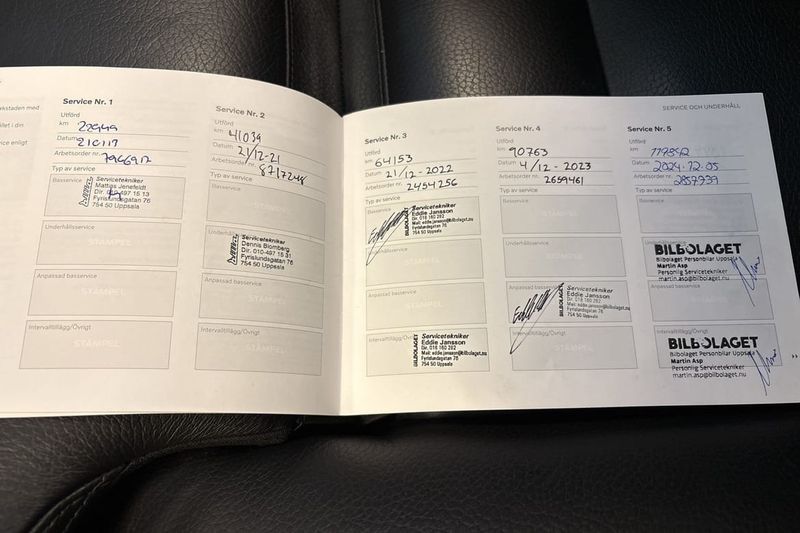 SERVICE OCH UNDERHÅLL
rkstaden med
llet i din
ce enligt
Service Nr. 1
Utförd
km
Datum 210117
Arbetsorder nr. 7966912
Typ av service
Basservice
Servicetekniker
Mattias Jenefeldt
Dir. 010-497 15 13
Fyrislundsgatan 76
754 50 Uppsala
Underhållsservice
STÄMPEL
Anpassad basservice
STÄMPEL
Intervalltillägg/Övrigt
STÄMPEL
Service Nr. 2
Utförd
km 41039
Datum 21/12-21
Arbetsorder nr. 8717248
Typ av service
Basservice
Servicetekniker
Dennis Blomberg
Dir. 010-497 15 31
Fyrislundsgatan 76
754 50 Uppsala
Anpassad basservice
STÄMPEL
Intervalltillägg/Övrigt
STÄMPEL
Service Nr. 3
Utförd
km 64153
Datum 21/12-2022
Arbetsorder nr. 2454256
Typ av service
Basservice
BILBOLAGET
Servicetekniker
Eddie Jansson
Dir. 018 160 282
Mail: eddie.jansson@bilbolaget.nu
Fyrislundsgatan 76
754 50 Uppsala
Underhållsservice
STÄMPEL
Anpassad basservice
STÄMPEL
Intervalltillägg/Övrigt
BILBOLAGET
Servicetekniker
Eddie Jansson
Dir. 018 160 282
Mail: eddie.jansson@bilbolaget.nu
Fyrislundsgatan 76
754 50 Uppsala
Service Nr. 4
Utförd
km 90763
Datum 4/12-2023
Arbetsorder nr. 2659461
Typ av service
Basservice
Underhållsservice
STÄMPEL
Anpassad basservice
BILBOLAGET
Servicetekniker
Eddie Jansson
Dir. 018 160 282
Mail: eddie.jansson@bilbolaget.nu
Fyrislundsgatan 76
754 50 Uppsala
Intervalltillägg/Övrigt
STÄMPEL
Service Nr. 5
Utförd
km
Datum 2024-12-05
Arbetsorder nr. 2857939
Typ av service
Basservice
Underhållsservice
BILBOLAGET
Bilbolaget Personbilar Uppsala
Martin Asp
Personlig Servicetekniker
martin.asp@bilbolaget.nu
Anpassad basservice
STÄMPEL
Intervalltillägg/Övrigt
BILBOLAGET
Bilbolaget Personbilar Uppsala
Martin Asp
Personlig Servicetekniker
martin.asp@bilbolaget.nu
››